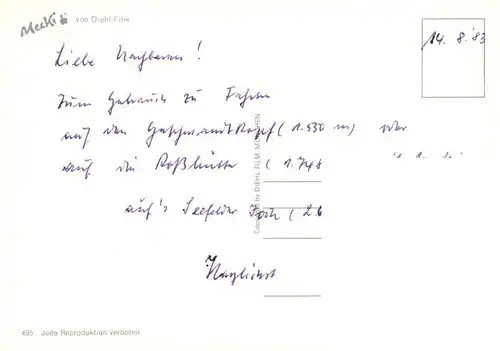 Mecki von Diehl-Film
14. 8. '83
Liebe Nachbarn!
Zum Gebrauch zu Fahrten
auf den Gschwandtkopf (1.530 m) oder
auf die Roßhütte (1.748
auf's Seefelder Joch (2.
Herzlichst
Copyright by DIEHL FILM, MÜNCHEN
495 Jede Reproduktion verboten